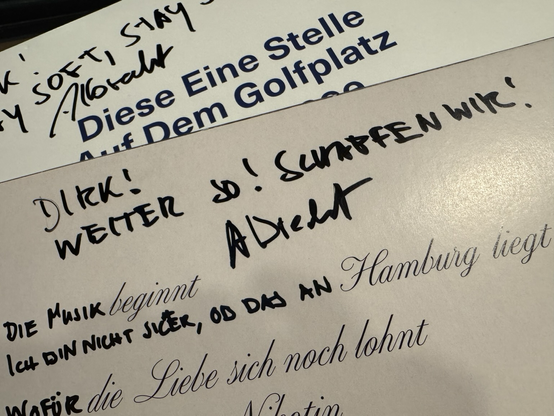 STAY SOFT, STAY S
Albrecht
Diese Eine Stelle
Auf Dem Golfplatz
DIRK!
WEITER SO! SCHAFFEN WIR!
Albrecht
DIE MUSIK beginnt
ICH BIN NICHT SICHER, OB DAS AN Hamburg liegt
WOFÜR die Liebe sich noch lohnt
Nikotin